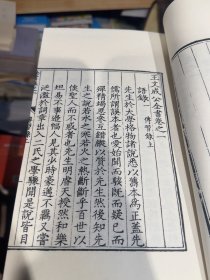 王文成公全書卷之一
語錄一 傳習錄上
先生於大學格物諸說悉以舊本為正蓋先
儒所謂誤本者也愛始聞而駭既而疑已而
殫精竭思參互錯縱以質於先生然後知先
生之說若水之寒若火之熱斷斷乎百世以
俟聖人而不惑者也先生明睿天授然和樂
坦易不事邊幅人見其少時豪邁不羈又嘗
泛濫於詞章出入二氏之學驟聞是說皆目